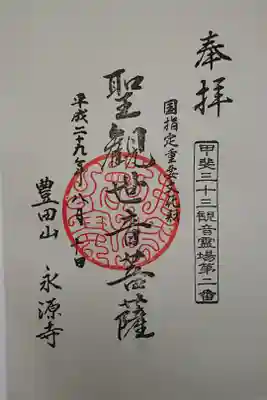 奉拝
甲斐三十三観音霊場第二番
国指定重要文化財
聖観世音菩薩
平成二十九年八月十一日
豊田山 永源寺